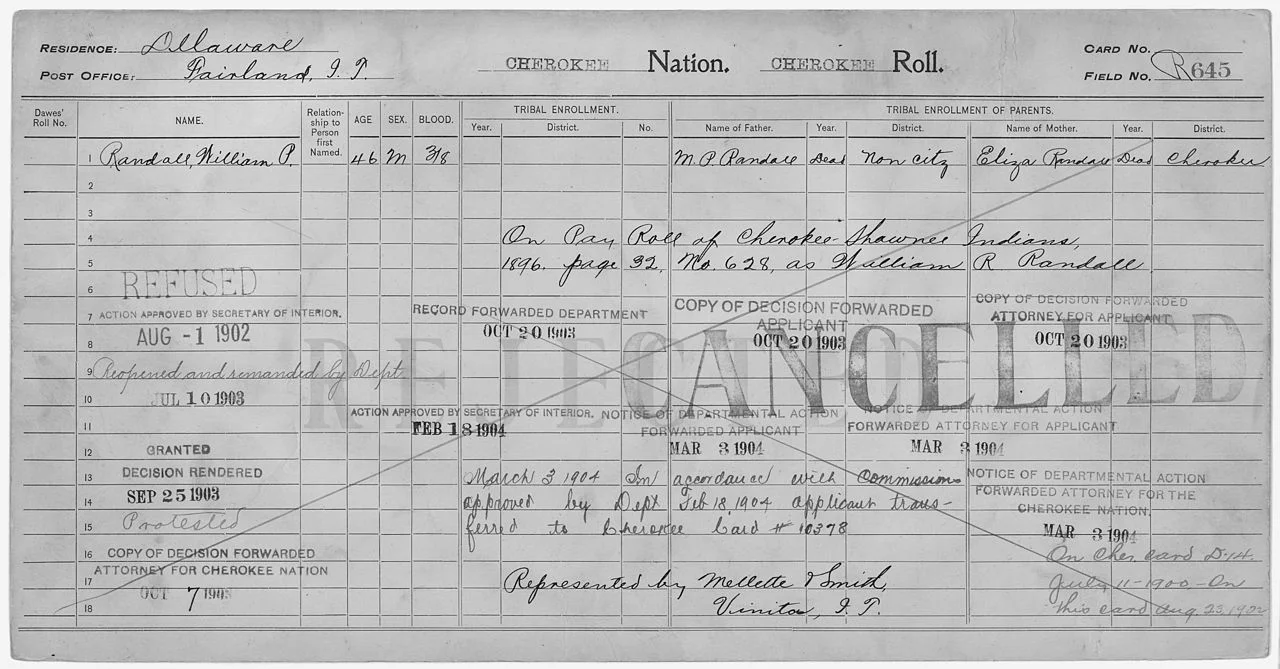 RESIDENCE: Delaware
POST OFFICE: Fairland, I. T.
CHEROKEE Nation. CHEROKEE Roll.
CARD NO.
FIELD NO. R645
Dawes' Roll No.
NAME.
Relationship to Person first Named.
AGE
SEX.
BLOOD.
TRIBAL ENROLLMENT.
Year. District. No.
TRIBAL ENROLLMENT OF PARENTS.
Name of Father. Year. District. Name of Mother. Year. District.
1 Randall, William P. 46 M 3/8 M. P. Randall Dead Non citz Eliza Randall Dead Cherokee
2
3
4 On Pay Roll of Cherokee-Shawnee Indians,
5 1896. page 32, No. 628, as William R Randall
6 REFUSED
7 ACTION APPROVED BY SECRETARY OF INTERIOR.
8 AUG -1 1902
RECORD FORWARDED DEPARTMENT
OCT 20 1903
COPY OF DECISION FORWARDED
APPLICANT
OCT 20 1903
COPY OF DECISION FORWARDED
ATTORNEY FOR APPLICANT
OCT 20 1903
REJECTED
CANCELLED
9 Reopened and remanded by Dept
10 JUL 10 1903
11
ACTION APPROVED BY SECRETARY OF INTERIOR.
FEB 18 1904
NOTICE OF DEPARTMENTAL ACTION
FORWARDED APPLICANT
MAR 3 1904
NOTICE OF DEPARTMENTAL ACTION
FORWARDED ATTORNEY FOR APPLICANT
MAR 3 1904
12 GRANTED
13 DECISION RENDERED
14 SEP 25 1903
15 Protested
March 3 1904 In accordance with Commissions
approved by Dept Feb 18, 1904 applicant trans-
ferred to Cherokee Card # 10378
NOTICE OF DEPARTMENTAL ACTION
FORWARDED ATTORNEY FOR THE
CHEROKEE NATION.
MAR 3 1904
16 COPY OF DECISION FORWARDED
ATTORNEY FOR CHEROKEE NATION
17 OCT 7 1903
18
Represented by Mellette & Smith,
Vinita, I. T.
On Cher. card D-14.
July 11-1900-On
this card Aug. 23, 1902